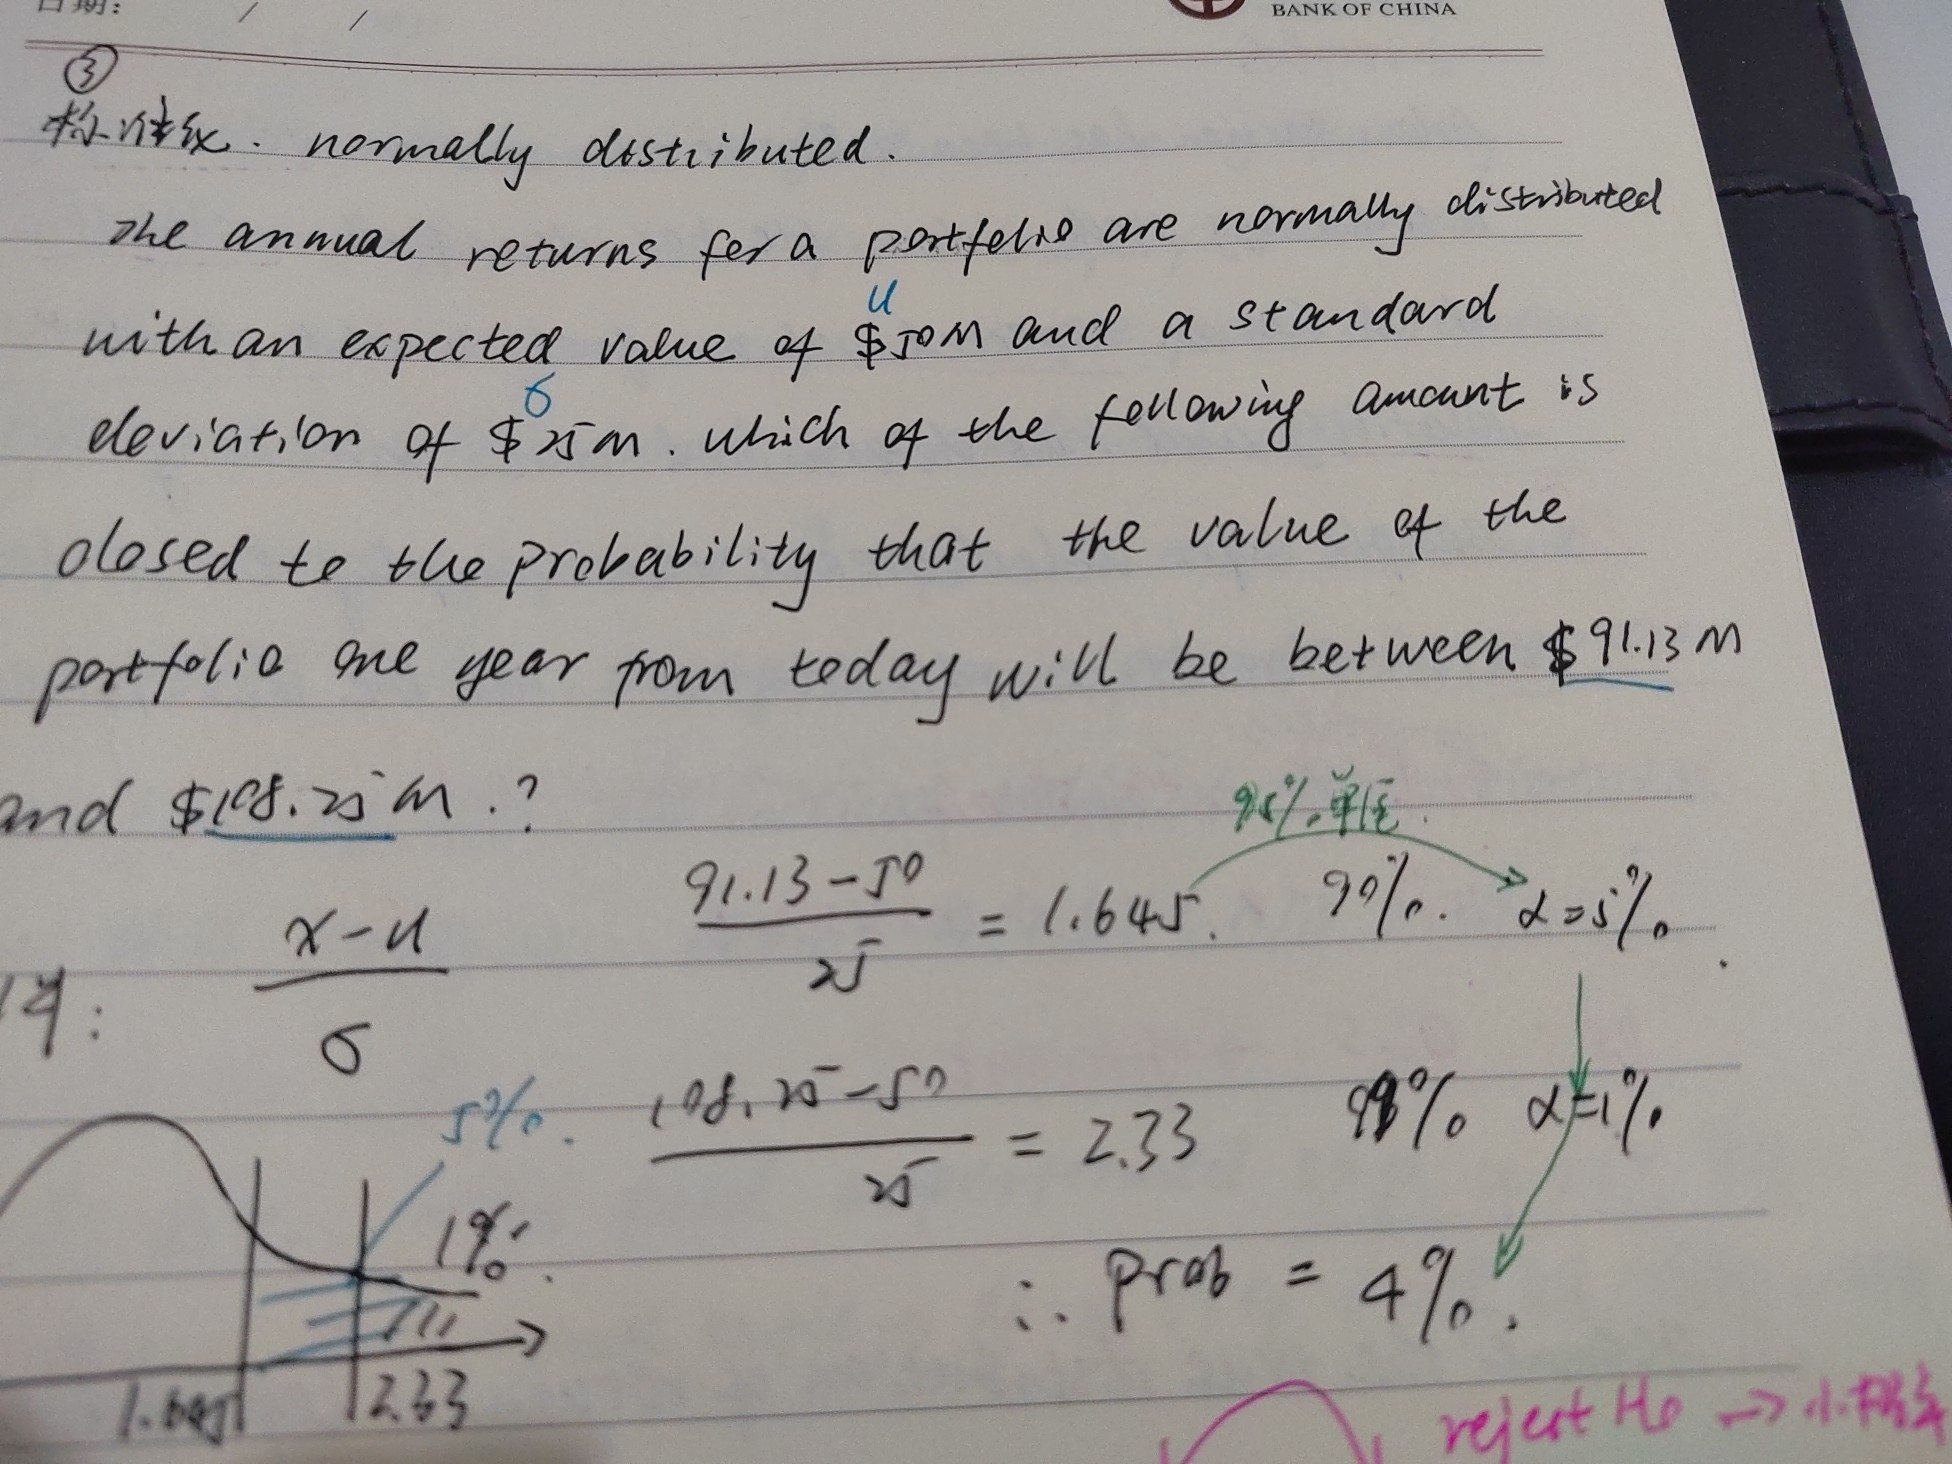 日期: / /
BANK OF CHINA
③
标准化. normally distributed.
The annual returns for a portfolio are normally distributed
u
with an expected value of $50M and a standard
σ
deviation of $25M. which of the following amount is
closed to the probability that the value of the
portfolio one year from today will be between $91.13M
and $108.25M.?
95%.单尾.
x-u / σ
91.13-50 / 25 = 1.645. 90%. α=5%.
108.25-50 / 25 = 2.33 98% α=1%.
5%.
1%.
∴ prob = 4%.
1.645 2.33
reject H₀ →